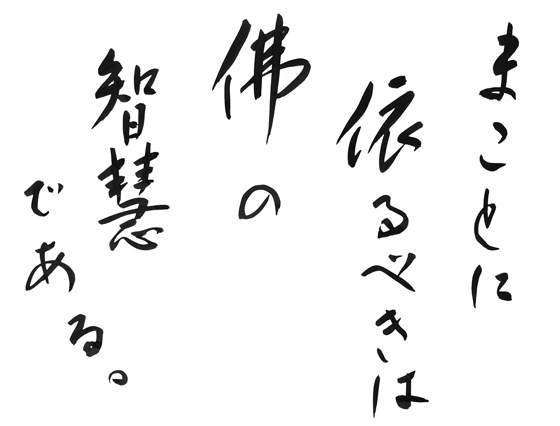 まことに
依るべきは
佛の
智慧
である。